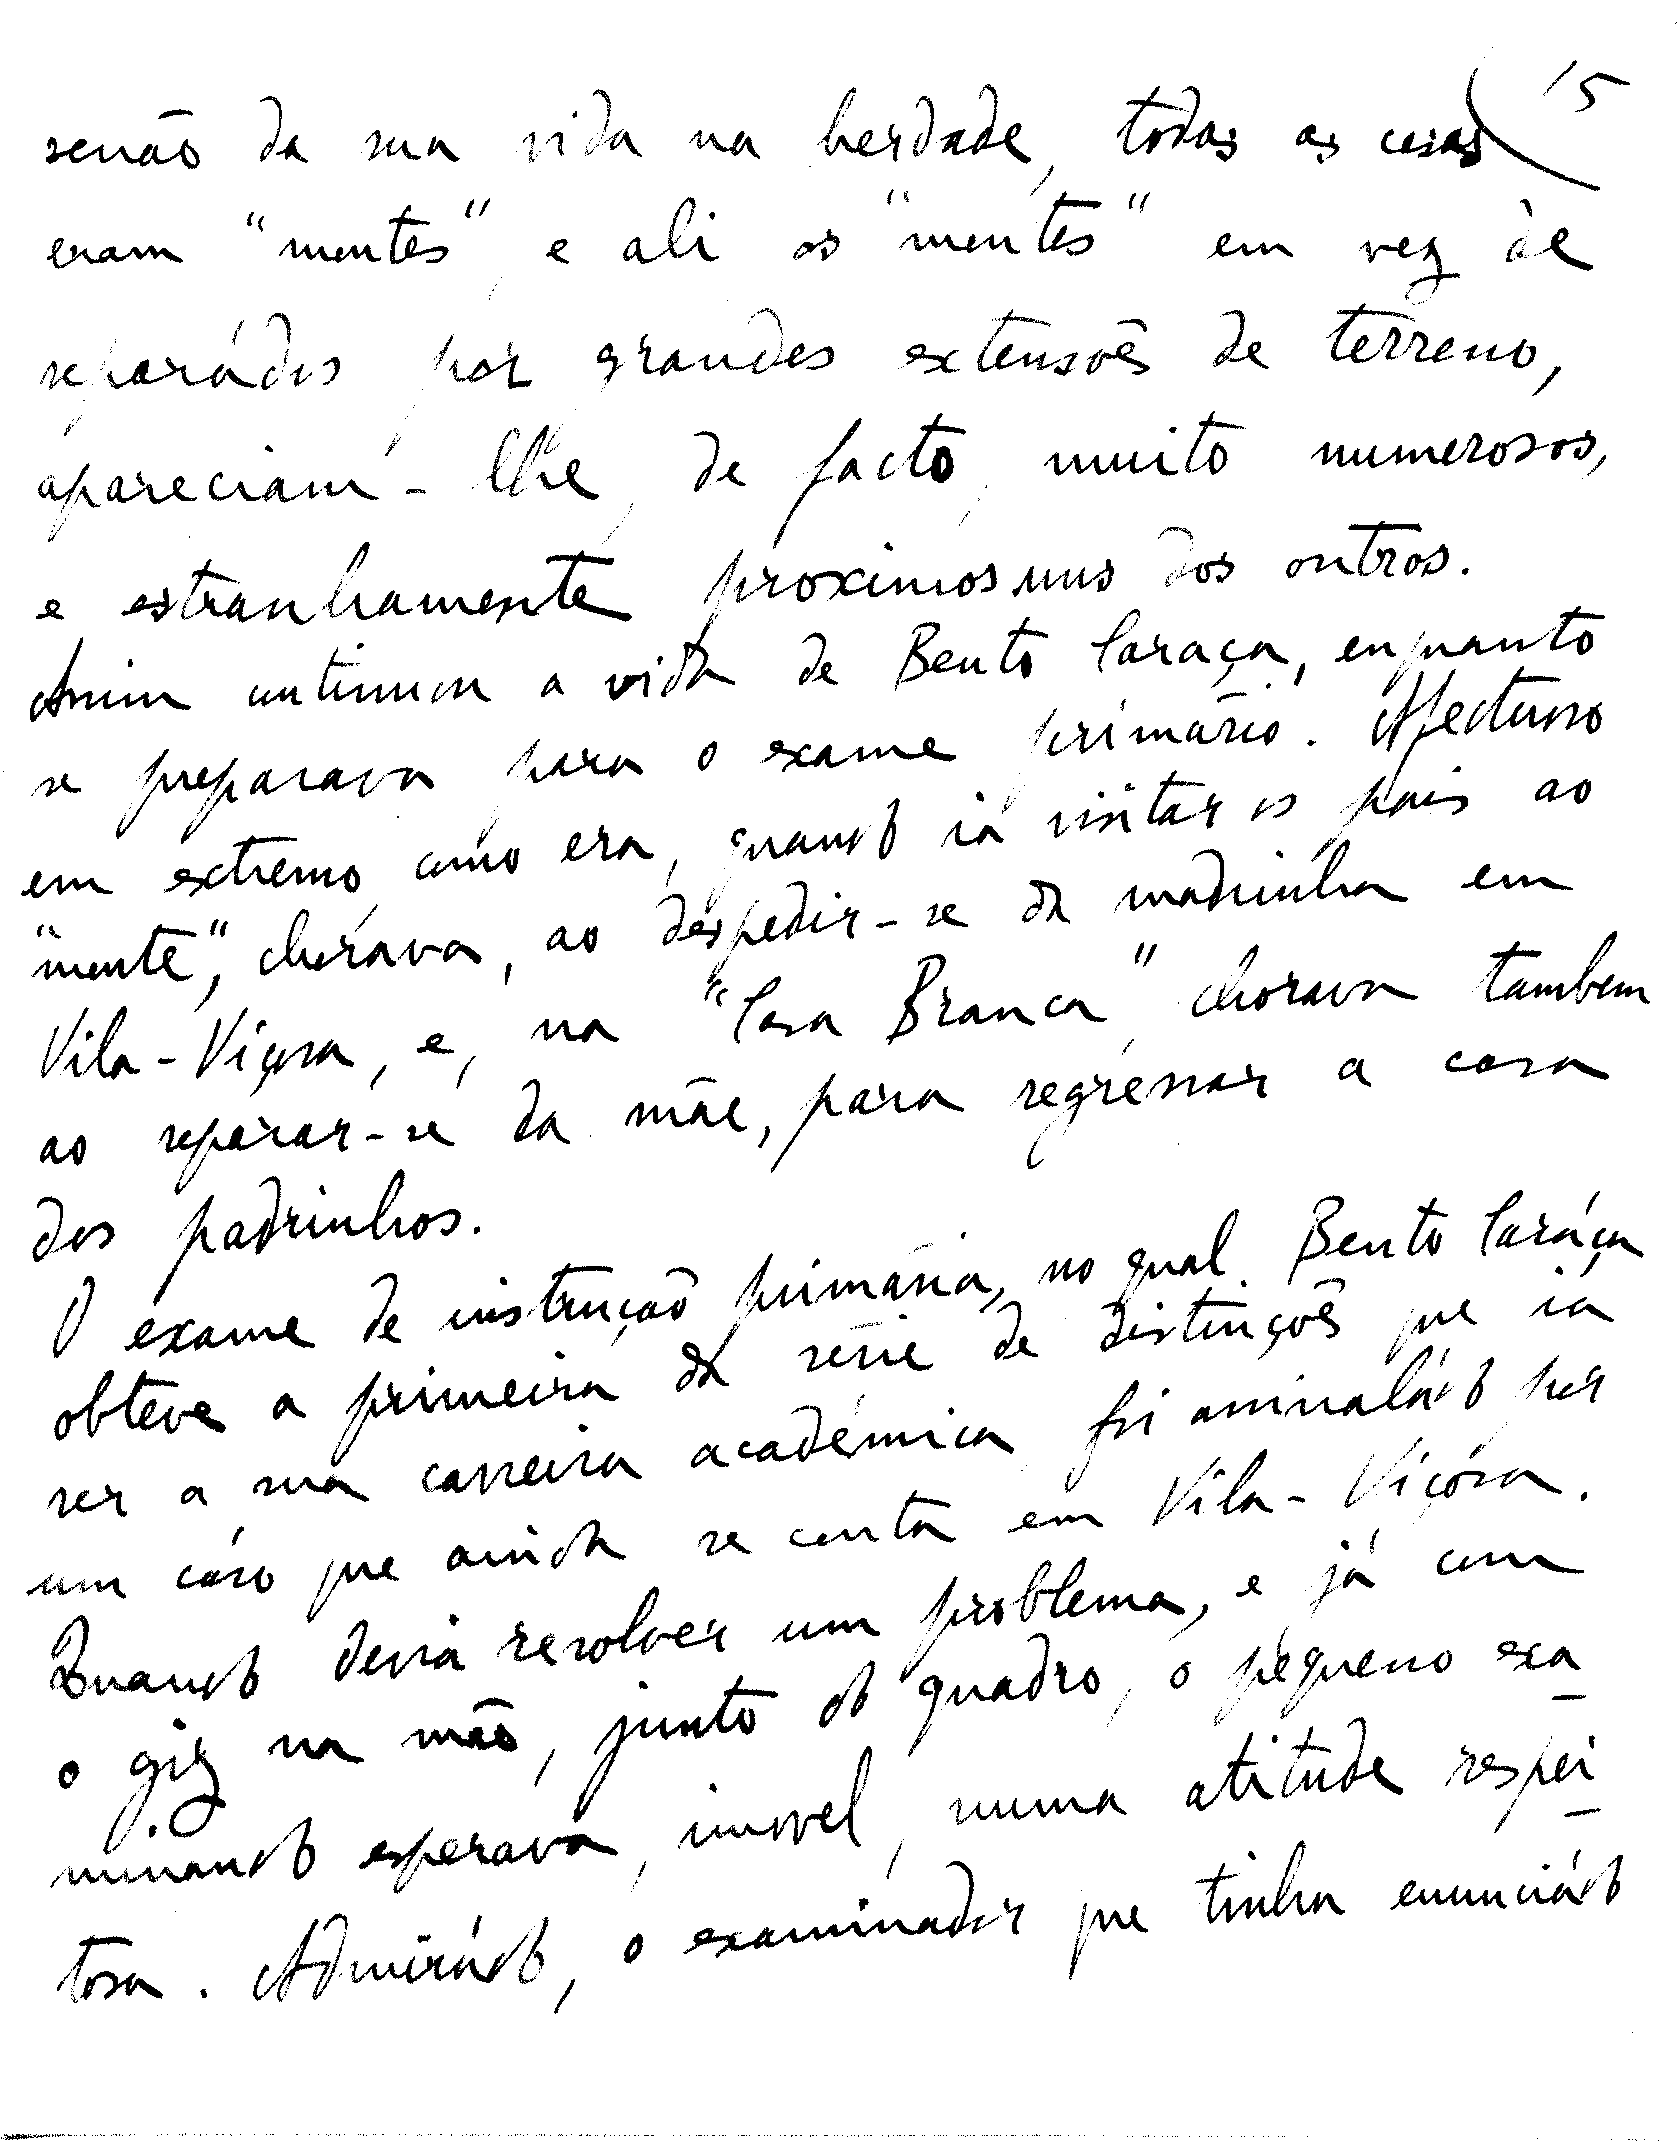 15
senão da sua vida na herdade, todas as casas
eram "montes", e ali os "montes" em vez de
separados por grandes extensões de terreno,
apareciam-lhe, de facto, muito numerosos,
e estranhamente proximos uns dos outros.
Assim continuou a vida de Bento Caraça, enquanto
se preparava para o exame primário. Afectuoso
em extremo como era, quando ia visitar os pais ao
"monte", chorava, ao despedir-se da madrinha em
Vila-Viçosa, e, na "Casa Branca" chorava tambem
ao separar-se da mãe, para regressar a casa
dos padrinhos.
O exame de instrução primária, no qual Bento Caraça
obteve a primeira da série de distinções que ia
ser a sua carreira académica foi assinalado por
um caso que ainda se conta em Vila-Viçosa.
Quando devia resolver um problema, e já com
o giz na mão, junto do quadro, o pequeno exa-
minando esperava, imovel, numa atitude respei-
tosa. Admirado, o examinador que tinha enunciado